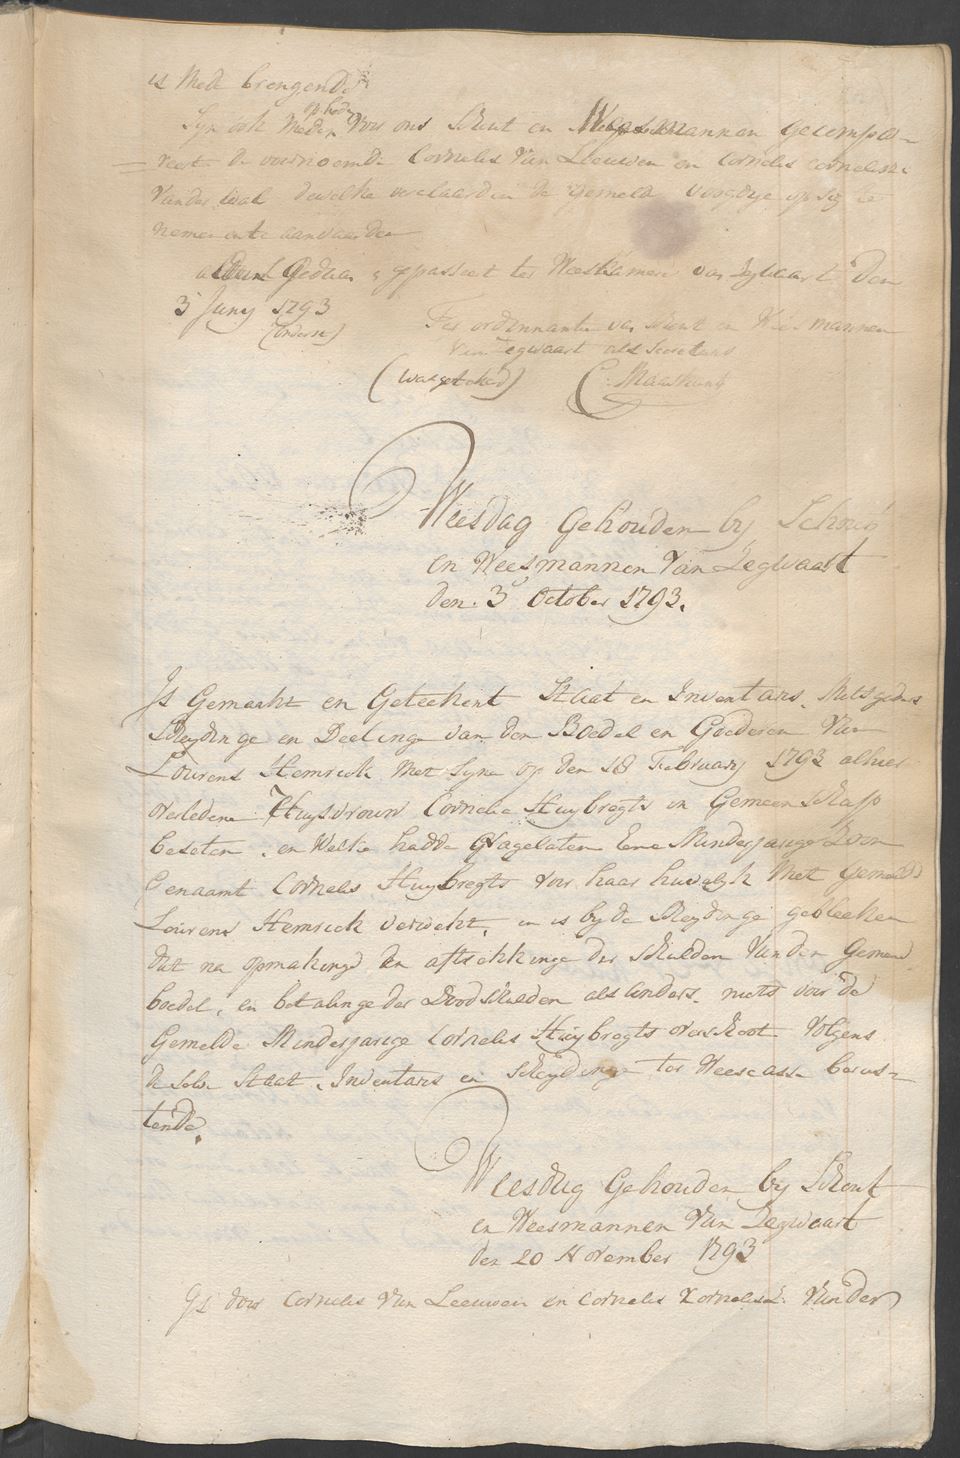 is mede brengende
op heden
Syn ook mede voor ons Schout en Weesmannen gecompa-
reert de voornoemde Cornelis van Leeuwen en Cornelis Cornelisse
van der Wal dewelke verclaarden de gemelde voogdye op sig te
nemen en te aanvaarden
Gedaan & gepasseert ter Weeskamer van Zegwaart den
3 Juny 1793
(onderst)
Ter ordonnantie van Schout en Weesmannen
van Zegwaart als Secretaris
(was getekend) C. Maarkant
Weesdag Gehouden by Schout
en Weesmannen van Zegwaart
den 3 October 1793.
Is Gemaakt en Geteekent Staat en Inventaris, Mitsgaders
Scheydinge en Deelinge van den Boedel en Goederen van
Lourens Hemrick met syne op den 18 February 1793 alhier
overledene Huysvrouw Cornelia Huybregts in Gemeenschap
beseten, en Welke hadde Nagelaten Eene Minderjarige Zoon
Genaamt Cornelis Huybregts voor haar huwelyk met gemelde
Lourens Hemrick verwekt, en is by de Scheydinge gebleeken
dat na opmakinge en aftrekkinge der schulden van den Gemeene
boedel, en betalinge der Doodschulden als anders, niets voor de
Gemelde Minderjarige Cornelis Huybregts overschoot volgens
de selve Staat, Inventaris en Scheydinge ter Weescasse berus-
tende,
Weesdag Gehouden by Schout
en Weesmannen van Zegwaart
den 20 November 1793
Is door Cornelis van Leeuwen en Cornelis Cornelisz. van der